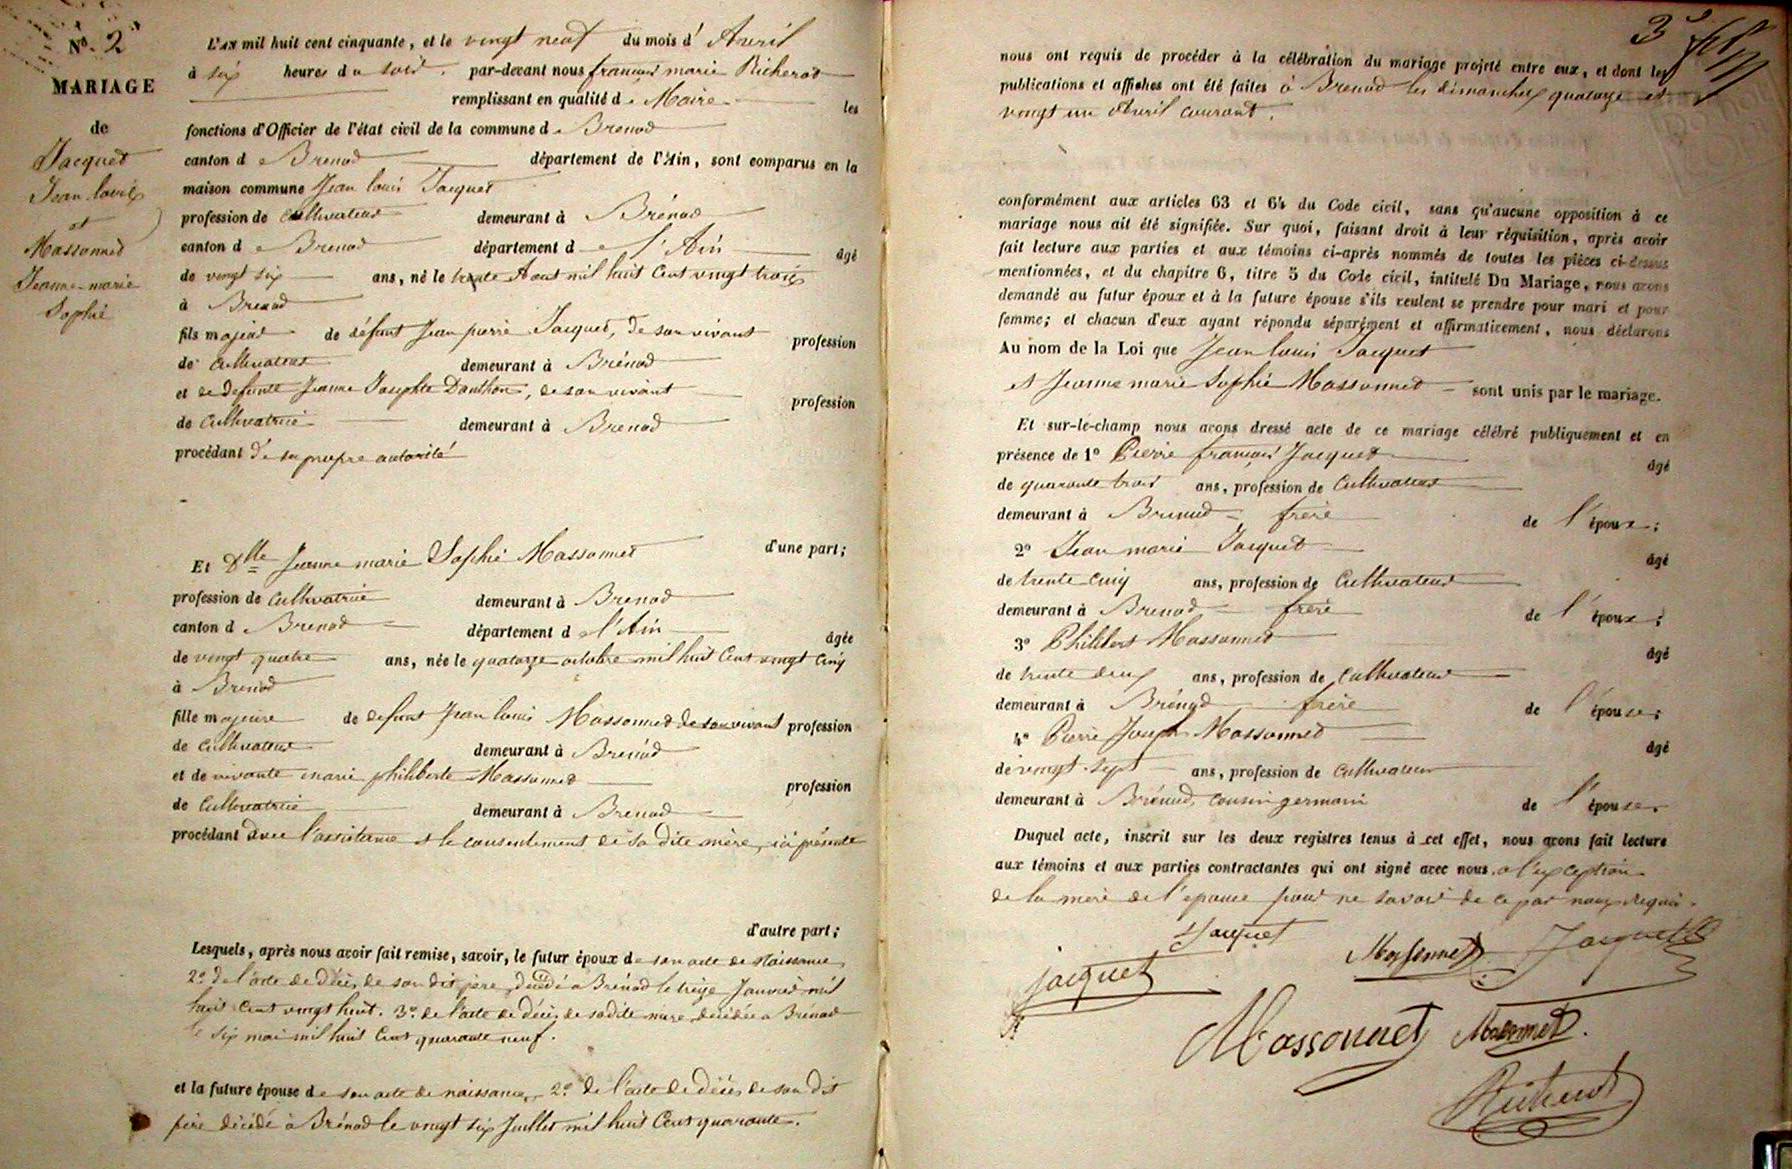 No. 2
MARIAGE
de
Jacquet
Jean louis
et
Massonnet
Jeanne-marie
Sophie
L'AN mil huit cent cinquante, et le vingt neuf du mois d' Avril
à six heures du soir. par-devant nous françois marie Richerot
remplissant en qualité de Maire les
fonctions d'Officier de l'état civil de la commune de Brenod
canton d Brenod département de l'Ain, sont comparus en la
maison commune Jean louis Jacquet
profession de cultivateur demeurant à Brénod
canton d Brenod département d l'Ain âgé
de vingt six ans, né le trente Aout mil huit Cent vingt trois
à Brenod
fils majeur de défunt Jean pierre Jacquet, de son vivant profession
de cultivateur demeurant à Brénod
et de defunte Jeanne Josephte Danthon, de son vivant profession
de cultivatrice demeurant à Brenod
procédant de sa propre autorité
d'une part;
Et Dlle Jeanne marie Sophie Massonnet
profession de cultivatrice demeurant à Brenod
canton d Brenod département d l'Ain âgée
de vingt quatre ans, née le quatorze octobre mil huit Cent vingt Cinq
à Brenod
fille majeure de defunt Jean louis Massonnet de son vivant profession
de cultivateur demeurant à Brénod
et de vivante marie philiberte Massonnet profession
de Cultivatrice demeurant à Brenod
procédant avec l'assistance et le consentement de sa dite mère, ici présente
d'autre part;
Lesquels, après nous avoir fait remise, savoir, le futur époux de son acte de Naissance
2o de l'acte de décès de son dit père, décédé à Brénod le treize Janvier mil
huit Cent vingt huit. 3o de l'acte de décès de sadite mère, décédée à Brénod
le six mai mil huit Cent quarante neuf.
et la future épouse de son acte de naissance, 2o de l'acte de décès de son dit
père décédé à Brénod le vingt six Juillet mil huit Cent quarante.
3e
nous ont requis de procéder à la célébration du mariage projeté entre eux, et dont les
publications et affiches ont été faites à Brenod les dimanches quatorze et
vingt un Avril courant.
conformément aux articles 63 et 64 du Code civil, sans qu'aucune opposition à ce
mariage nous ait été signifiée. Sur quoi, faisant droit à leur réquisition, après avoir
fait lecture aux parties et aux témoins ci-après nommés de toutes les pièces ci-dessus
mentionnées, et du chapitre 6, titre 5 du Code civil, intitulé Du Mariage, nous avons
demandé au futur époux et à la future épouse s'ils veulent se prendre pour mari et pour
femme; et chacun d'eux ayant répondu séparément et affirmativement, nous déclarons
Au nom de la Loi que Jean louis Jacquet
et Jeanne marie Sophie Massonnet sont unis par le mariage.
Et sur-le-champ nous avons dressé acte de ce mariage célébré publiquement et en
présence de 1o Pierre françois Jacquet âgé
de quarante trois ans, profession de Cultivateur
demeurant à Brenod frère de l'époux;
2o Jean marie Jacquet âgé
de trente cinq ans, profession de Cultivateur
demeurant à Brenod frère de l'époux;
3o Philibert Massonnet âgé
de trente deux ans, profession de Cultivateur
demeurant à Brénod frère de l'épouse;
4o Pierre Joseph Massonnet âgé
de vingt-sept ans, profession de cultivateur
demeurant à Brénod, cousin germain de l'épouse.
Duquel acte, inscrit sur les deux registres tenus à cet effet, nous avons fait lecture
aux témoins et aux parties contractantes qui ont signé avec nous, a l'exception
de la mère de l'épouse pour ne savoir de ce par nous requis.
Jacquet
Jacquet Massonnet Jacquet
Massonnet Massonnet
Richerot